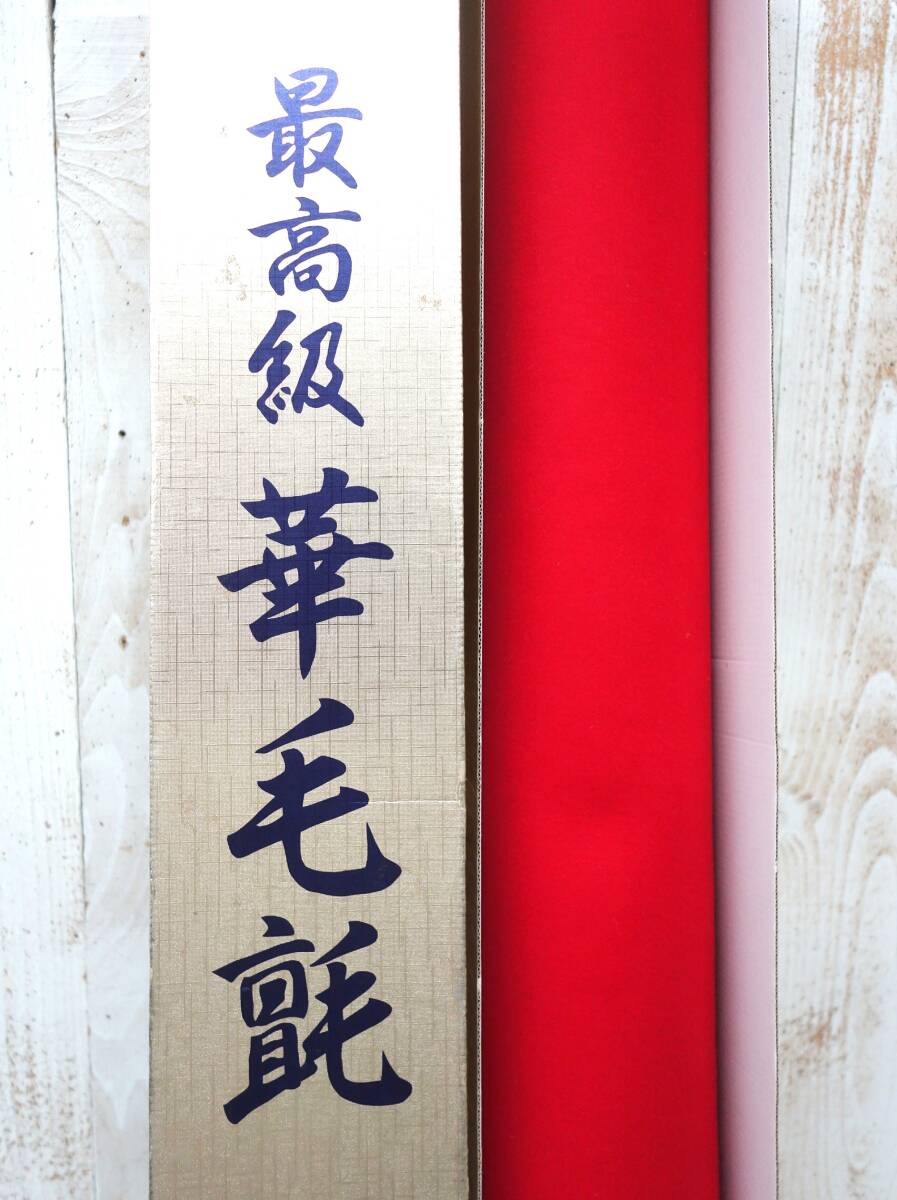 最高級 華毛氈